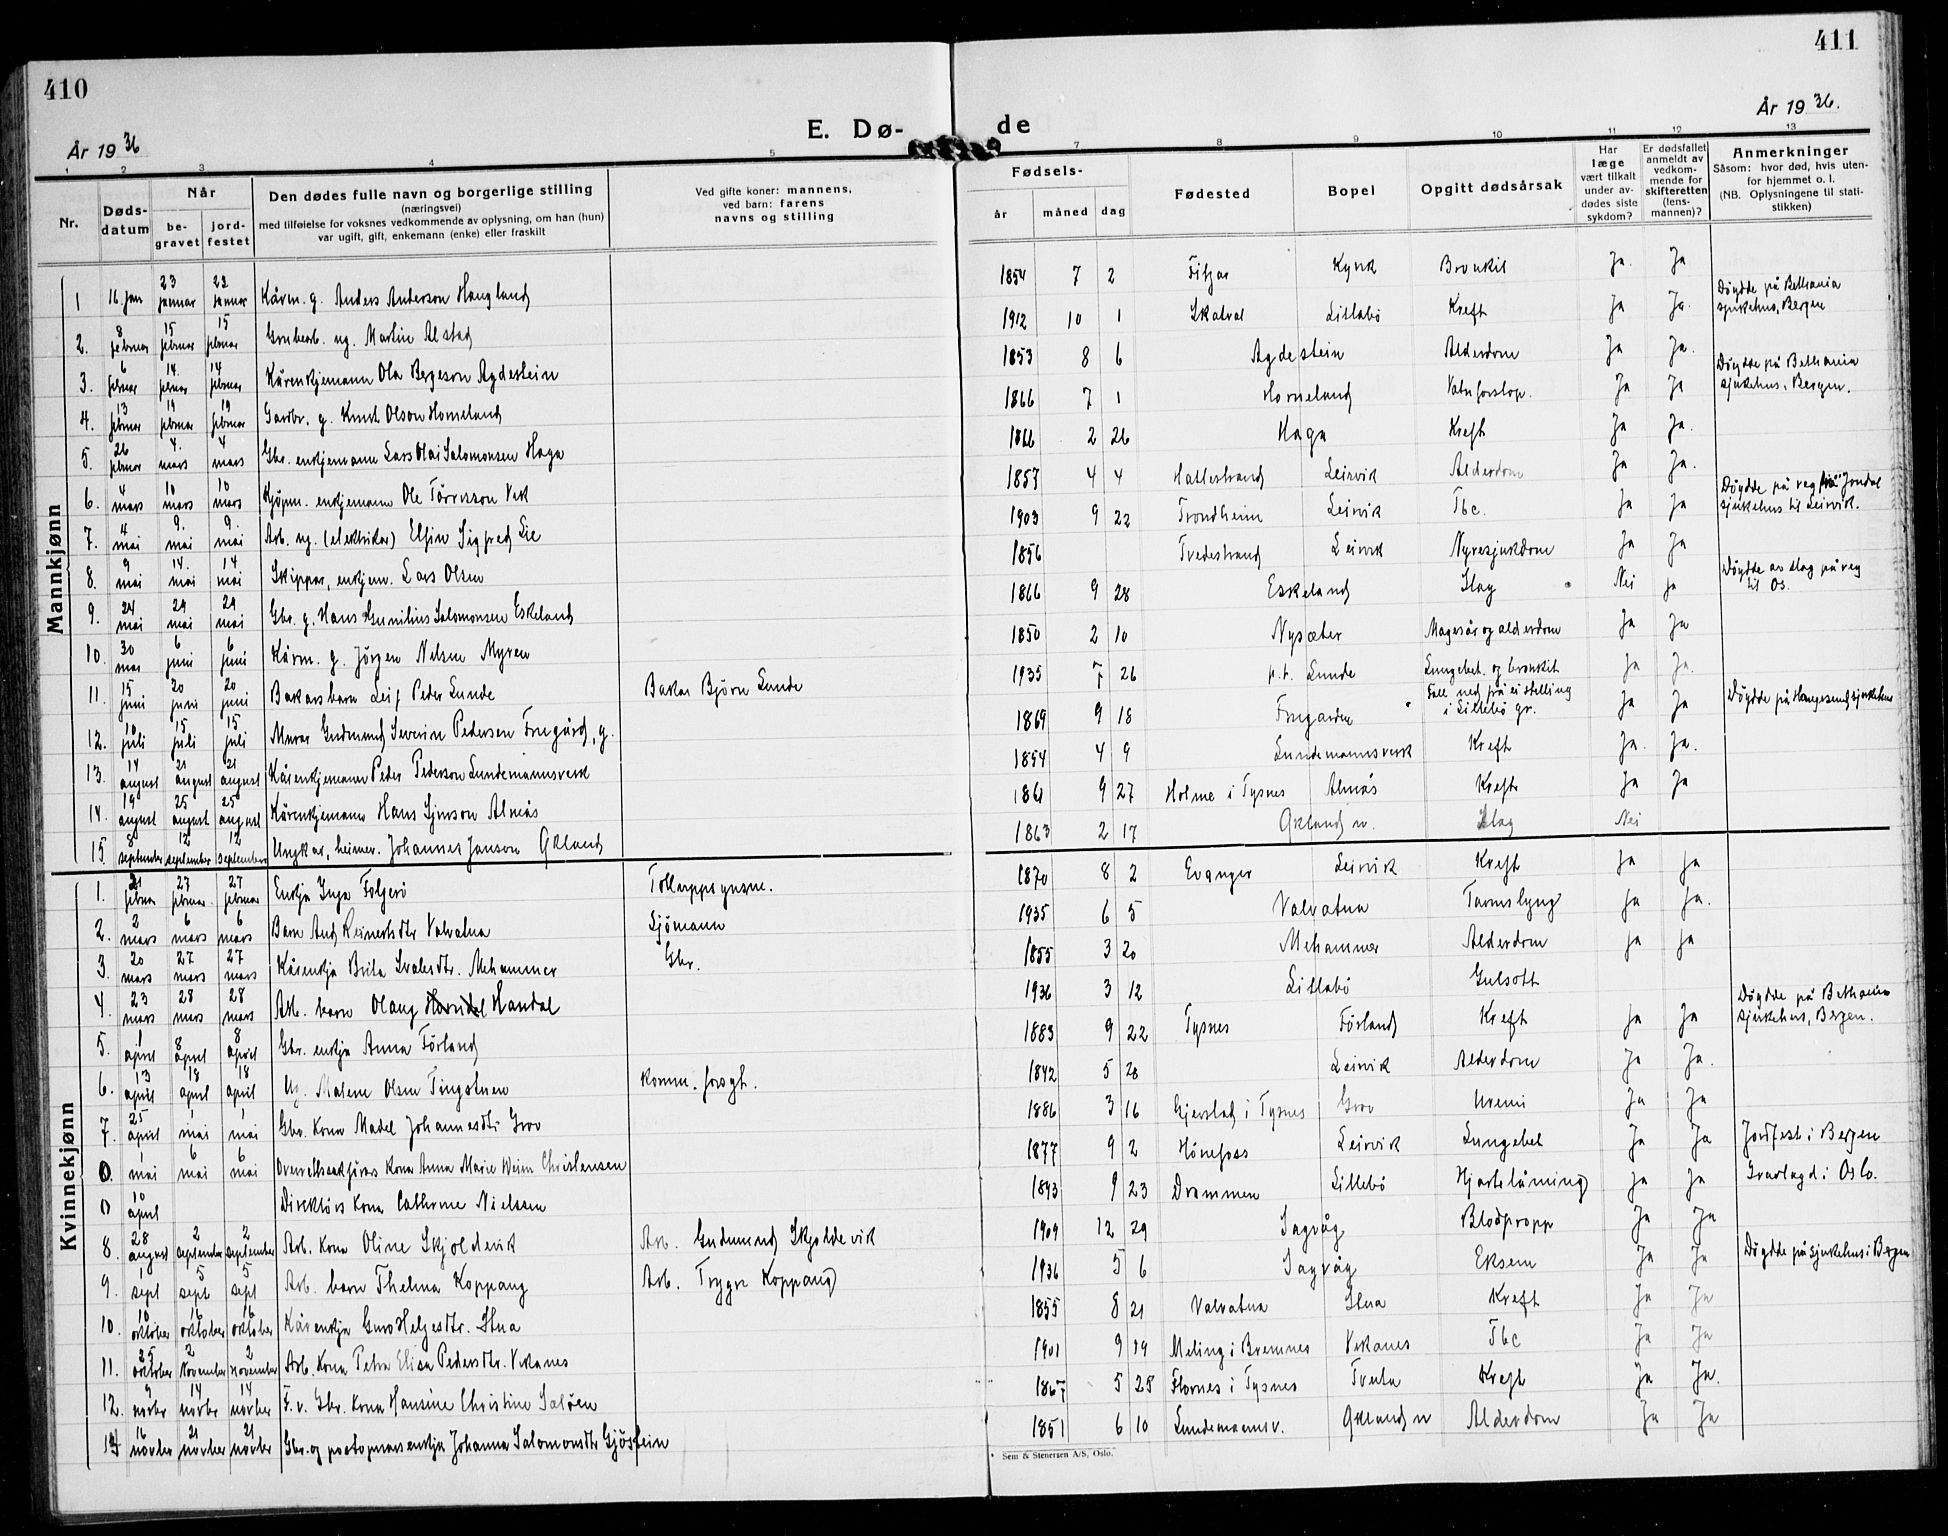 410
411
E. Dø-
de
År 1936
År 1936.
1 2 3 4 5 7 8 9 10 11 12 13
Nr.
Døds-
datum
Når
be-
gravet
jord-
festet
Den dødes fulle navn og borgerlige stilling
(næringsvei)
med tilføielse for voksnes vedkommende av oplysning, om han (hun)
var ugift, gift, enkemann (enke) eller fraskilt
Ved gifte koner: mannens,
ved barn: farens
navns og stilling
Fødsels-
år måned dag
Fødested
Bopel
Opgitt dødsårsak
Har
læge
vært tilkalt
under av-
dødes siste
sykdom?
Er dødsfallet
anmeldt av
vedkom-
mende for
skifteretten
(lens-
mannen)?
Anmerkninger
Såsom: hvor død, hvis uten-
for hjemmet o. l.
(NB. Oplysningene til stati-
stikken)
Mannkjønn
1 16. jan 23 januar 22 januar Kårm. g. Anders Anderson Haugland 1854 7 2 Fitjar Kyvk Bronkit Ja. Ja
2. 8 februar 15 februar 15 februar Martin Alstad 1912 10 1 Skatval Litlabø Kreft Ja Ja. Døydde på Bethania sjukehus, Bergen
3. 6 februar 14. februar 14 februar Kårenkjemann Ola Bergeson Agdestein 1853 8 6 Agdestein Alderdom Ja Ja.
4. 13 februar 19 februar 19 februar Gardbr. g. Knut Olson Horneland 1866 7 1 Horneland Vatnforstop. Ja Ja Døydde på Bethania sjukehus i Bergen.
5. 26 februar 4. mars 4 mars Gbr. enkjemann Lars Olai Salomonsen Haga 1866 2 26 Haga Kreft Ja Ja.
6. 4 mars 10 mars 10 mars Kjøpm. enkjemann Ole Tørresson Vik 1857 4 4 Hattestrand Leirvik Alderdom Ja Ja.
7. 4 mai 9. mai 9. mai Arb. ug. (elektriker) Elfin Sigfred Lie 1903 9 22 Trondheim Leirvik Tbc. Ja Ja Døydde på veg frå Jondal sjukehus til Leirvik.
8. 9 mai 14. mai 14 mai Skipper, enkjem. Lars Olsen 1856 Tvedestrand Leirvik Nyresjukdom Ja Ja
9. 24 mai 29 mai 29 mai Gbr. g. Hans Gunilius Salomonsen Eskeland 1866 9 28 Eskeland Slag Nei Ja Døydde av slag på veg til Os.
10. 30 mai 6 juni 6 juni Kårm. g. Jörgen Nelsen Myren 1850 2 10 Nysæter Magesår og alderdom Ja Ja
11. 15 juni 20 juni 20 juni Bakars barn Leif Peder Lunde Bakar Bjørn Lunde 1935 7 26 p.t. Lunde Lungebet. og bronkit Ja Ja.
12. 10 juli 15 juli 15 juli Murar Gudmund Severin Pedersen Frugård, g. 1869 9 18 Frugarden Fall ned frå ei stelling i Litlebö gr. Ja Ja Døydde på Haugesund sjukehus
13. 14 august 21 august 21 august Kårenkjemann Peder Pederson Lundemannsverk 1854 4 9 Lundemannsverk Kreft Ja. Ja.
14. 19 august 25 august 25 august Kårenkjemann Hans Simson Almås 1861 9 27 Holme i Tysnes Almås Kreft Ja Ja
15 8 september 12 september 12 september Ungkar, heimev. Johannes Janson Økland 1863 2 17 Økland n. Slag Nei
Kvinnekjønn
1. 21 februar 27 februar 27 februar Enkja Inga Folgerö Tolloppsynsm. 1870 8 2 Evanger Leirvik Kreft Ja Ja
2. 2 mars 6 mars 6 mars Barn Aud Reinertsdtr Valvatna Sjömann 1935 6 5 Valvatna Tarmslyng Ja Ja.
3. 20 mars 27 mars 27 mars Kårenkja Brita Ivarsdtr. Mehammer Gbr. 1855 3 20 Mehammer Alderdom Ja Ja
4. 23 mars 28 mars 28 mars Arb. barn Olaug Handal 1936 3 12 Litlabö Gulsott
5. 1 april 8 april 8 april Gbr. enkja Anna Förland 1883 9 22 Tysnes Förland Kreft Ja Ja Døydde på Bethania sjukehus, Bergen.
6. 13 april 18 april 18 april Ug. Malene Olsen Tingstuen Komm. forsgt. 1842 5 28 Leirvik Alderdom Ja Ja.
7. 25 april 1 mai 1 mai Gbr. Kona Madel Johannesdtr Grov 1886 3 16 Gjerstad i Tysnes Grov Uremi Ja Ja
0. 1 mai 6 mai 6 mai Overrettssakførars Kona Anna Marie Weien Christensen 1877 9 2 Hönefoss Leirvik Lungebet Ja Ja Jordfest i Bergen
0 10 april Direktörs Kona Cathrine Nielssen 1893 9 23 Drammen Litlebö Hjartelåming Ja Ja Gravlagd i Oslo.
8. 28 august 2 september 2 september Arb. Kona Oline Skjoldevik Arb. Gudmund Skjoldevik 1909 12 29 Sagvåg Blodpropp Ja Ja
9. 1 sept 5 sept 5 sept Arb. barn Thelma Koppang Arb. Trygve Koppang 1936 5 6 Sagvåg Eksem Ja Ja Døydde på sjukehus i Bergen
10. 10 oktober 16 oktober 16 oktober Kårenkja Guro Helgesdtr. Stua 1855 8 21 Valvatna Stua Kreft Ja Ja
11. 25 oktober 2 november 2 november Arb. Kona Petra Elisa Pedersdtr. Vikanes 1901 9 19 Meling i Bremnes Vikanes Tbc Ja Ja
12. 9 novbr 14 novbr 14 novbr F. v. Gbr. Kona Hansine Christine Salöen 1867 5 25 Flornes i Tysnes Tveita Kreft Ja Ja.
14 16 novber 21 novber 21 novber Gbr. og postopnars enkja Johanna Salomonsdtr Gjöstein 1851 6 10 Lundemannsv. Økland n Alderdom Ja Ja
Sem & Stenersen A/S, Oslo.